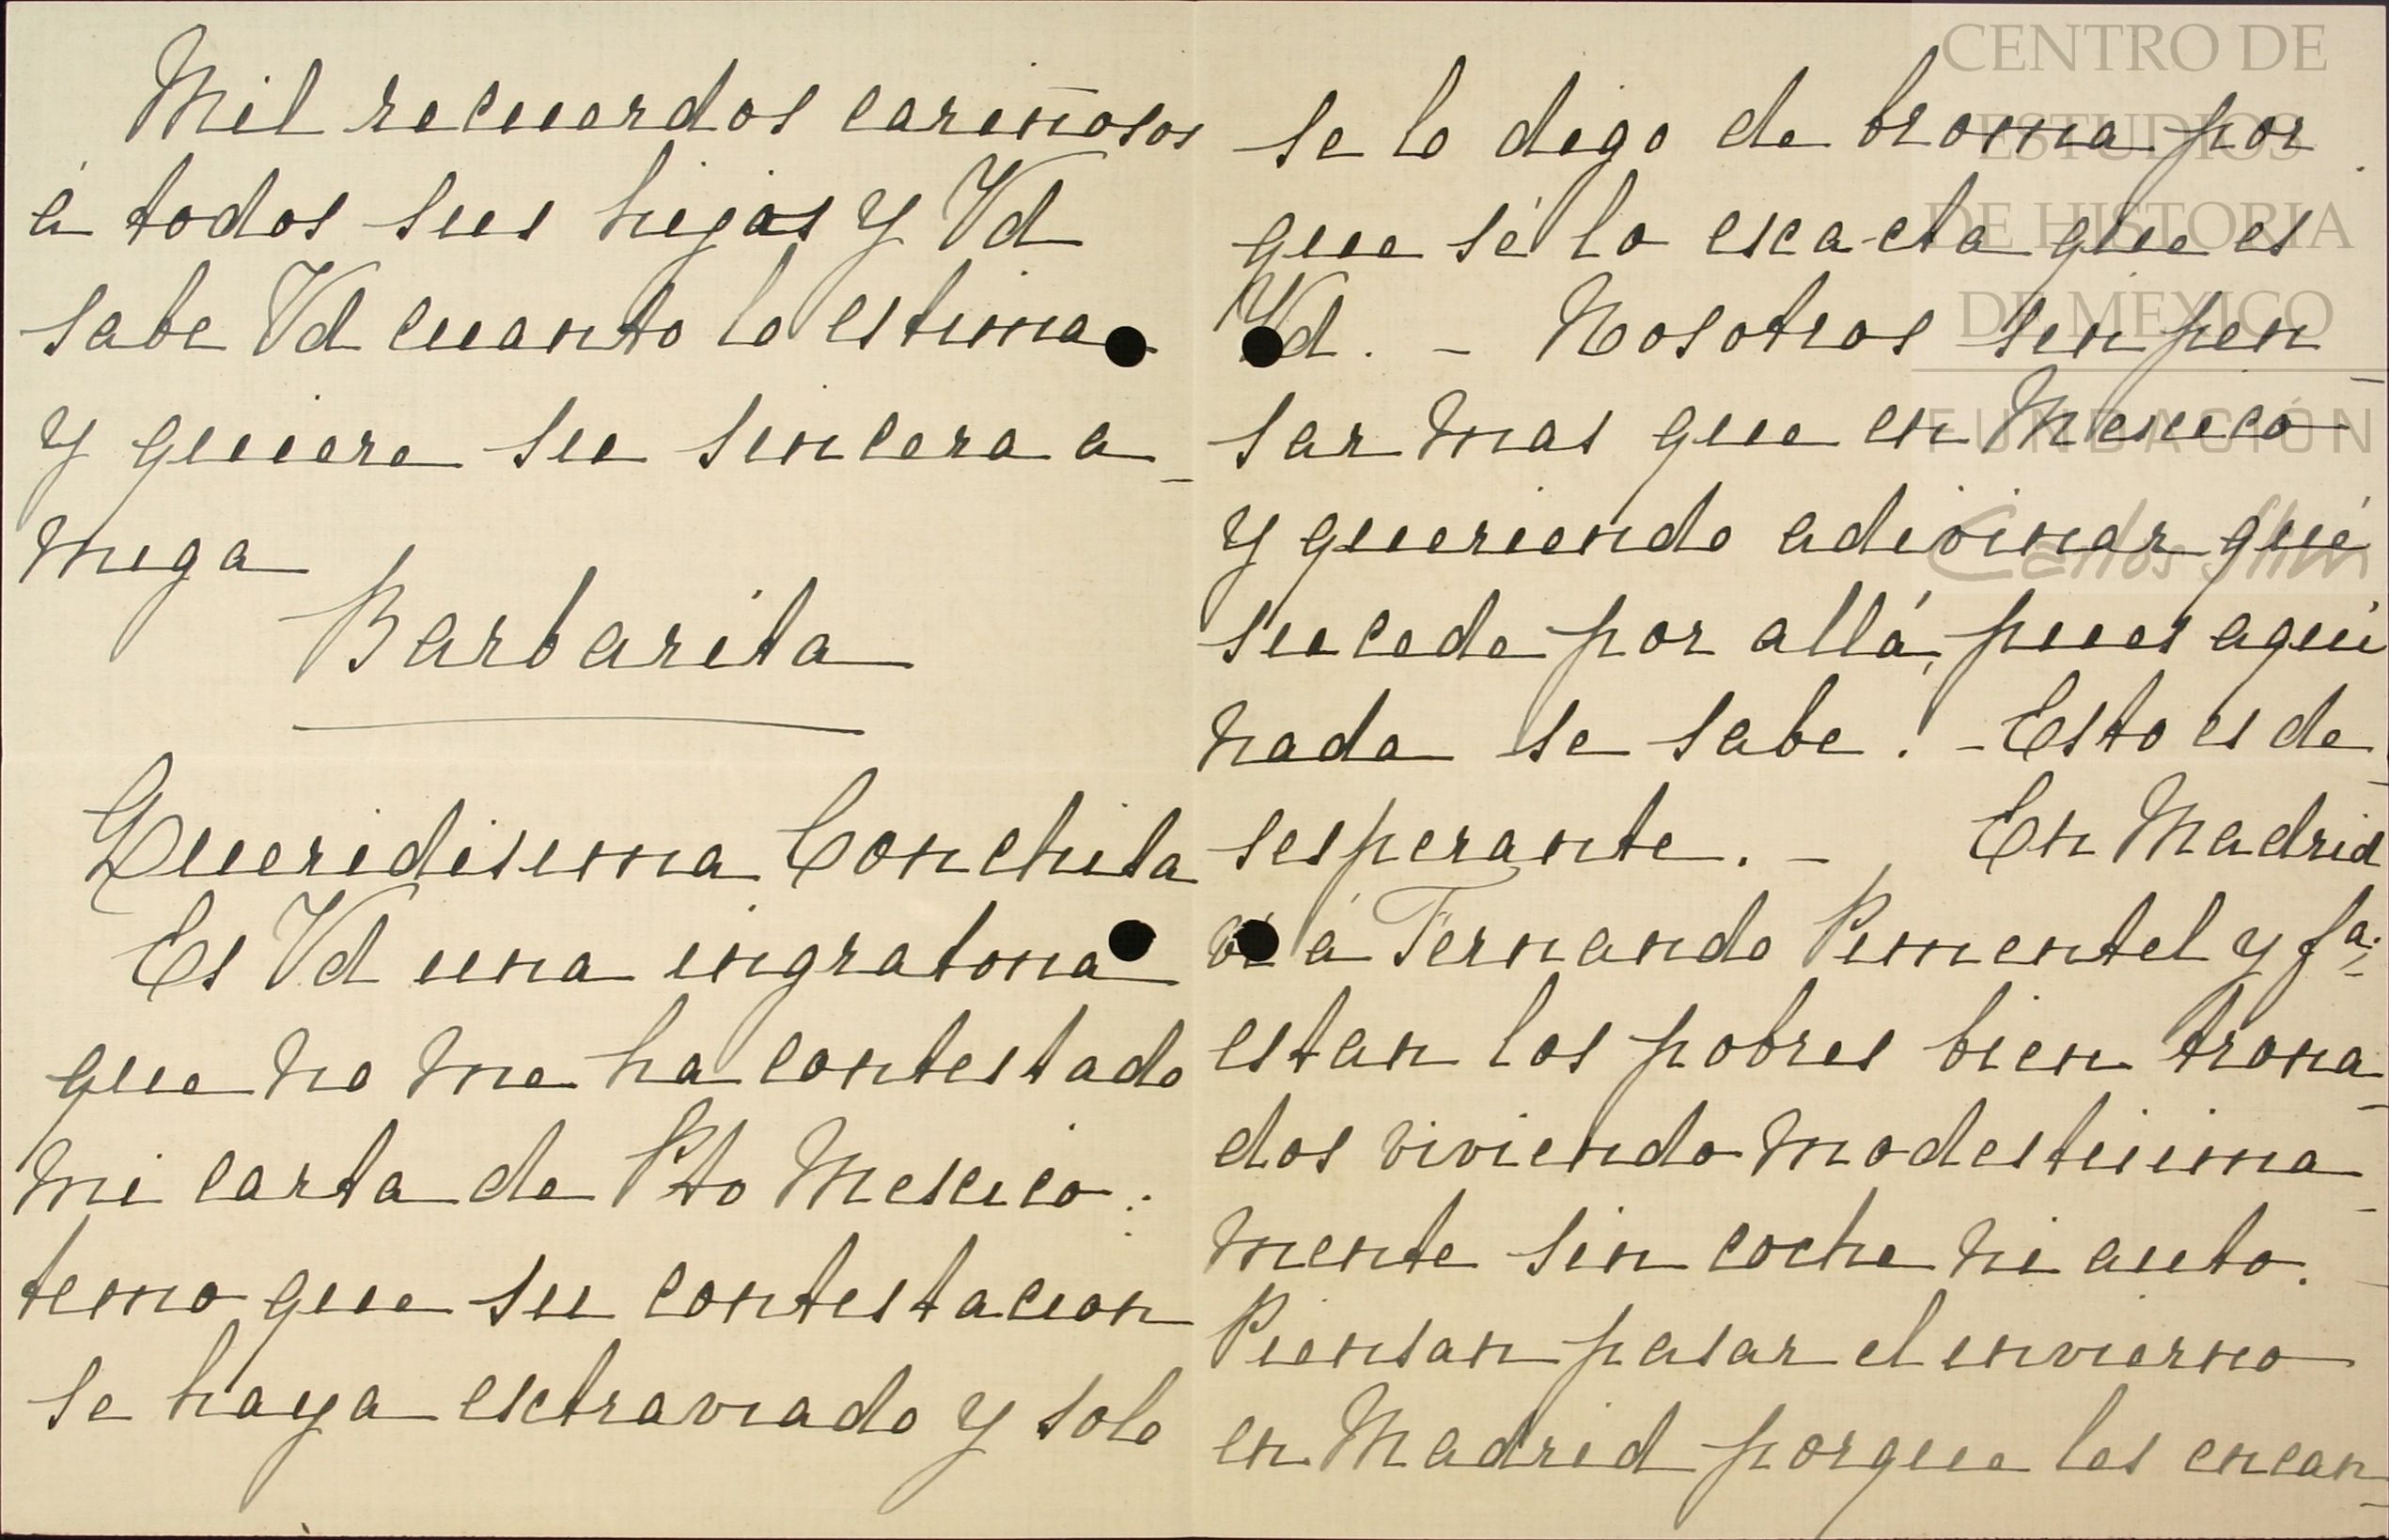 Mil recuerdos cariñosos
á todos sus hijos y Vd
sabe Vd cuanto lo estima
y quiere su sincera a-
miga
Barbarita
Queridisima Conchita
Es Vd una ingratona
que no me ha contestado
mi carta de Pto Mexico:
temo que su contestacion
se haya extraviado y solo
se lo digo de broma por
que sé lo exacta que es
Vd. - Nosotros sin pen-
sar mas que en Mexico
y queriendo adivinar qué
sucede por allá, pues aqui
nada se sabe! - Esto es de-
sesperante. - En Madrid
ví á Fernando Pimentel y fa.;
estan los pobres bien trona-
dos viviendo modestisima-
mente sin coche ni auto.
Piensan pasar el invierno
en Madrid porque les encan-
CENTRO DE
ESTUDIOS
DE HISTORIA
DE MEXICO
FUNDACIÓN
Carlos Slim